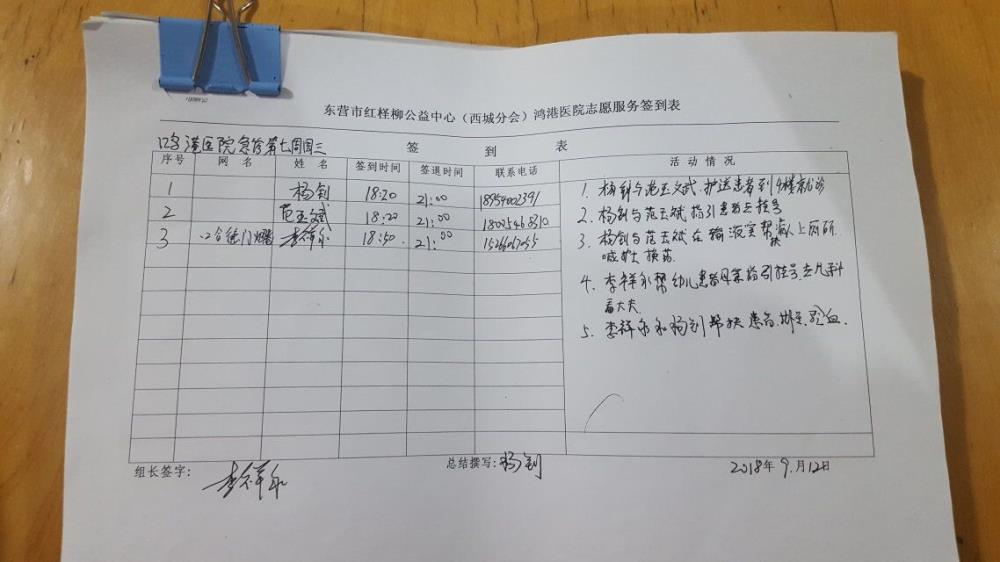 东营市红柽柳公益中心（西城分会）鸿港医院志愿服务签到表
鸿港医院急诊第七周周三
签 到 表
序号 网 名 姓 名 签到时间 签退时间 联系电话 活 动 情 况
1 杨钊 18:20 21:00
2 范玉斌 18:20 21:00
3 李祥永 18:50 21:00
1. 杨钊与范玉斌护送患者到4楼就诊
2. 杨钊与范玉斌指引患者去挂号
3. 杨钊与范玉斌在输液室帮病人上厕所
喊护士换药.
4. 李祥永帮幼儿患者母亲指引挂号.去儿科
看大夫.
5. 李祥永和杨钊帮扶患者.
组长签字: 李祥永
总结撰写: 杨钊
2018年9.月12日